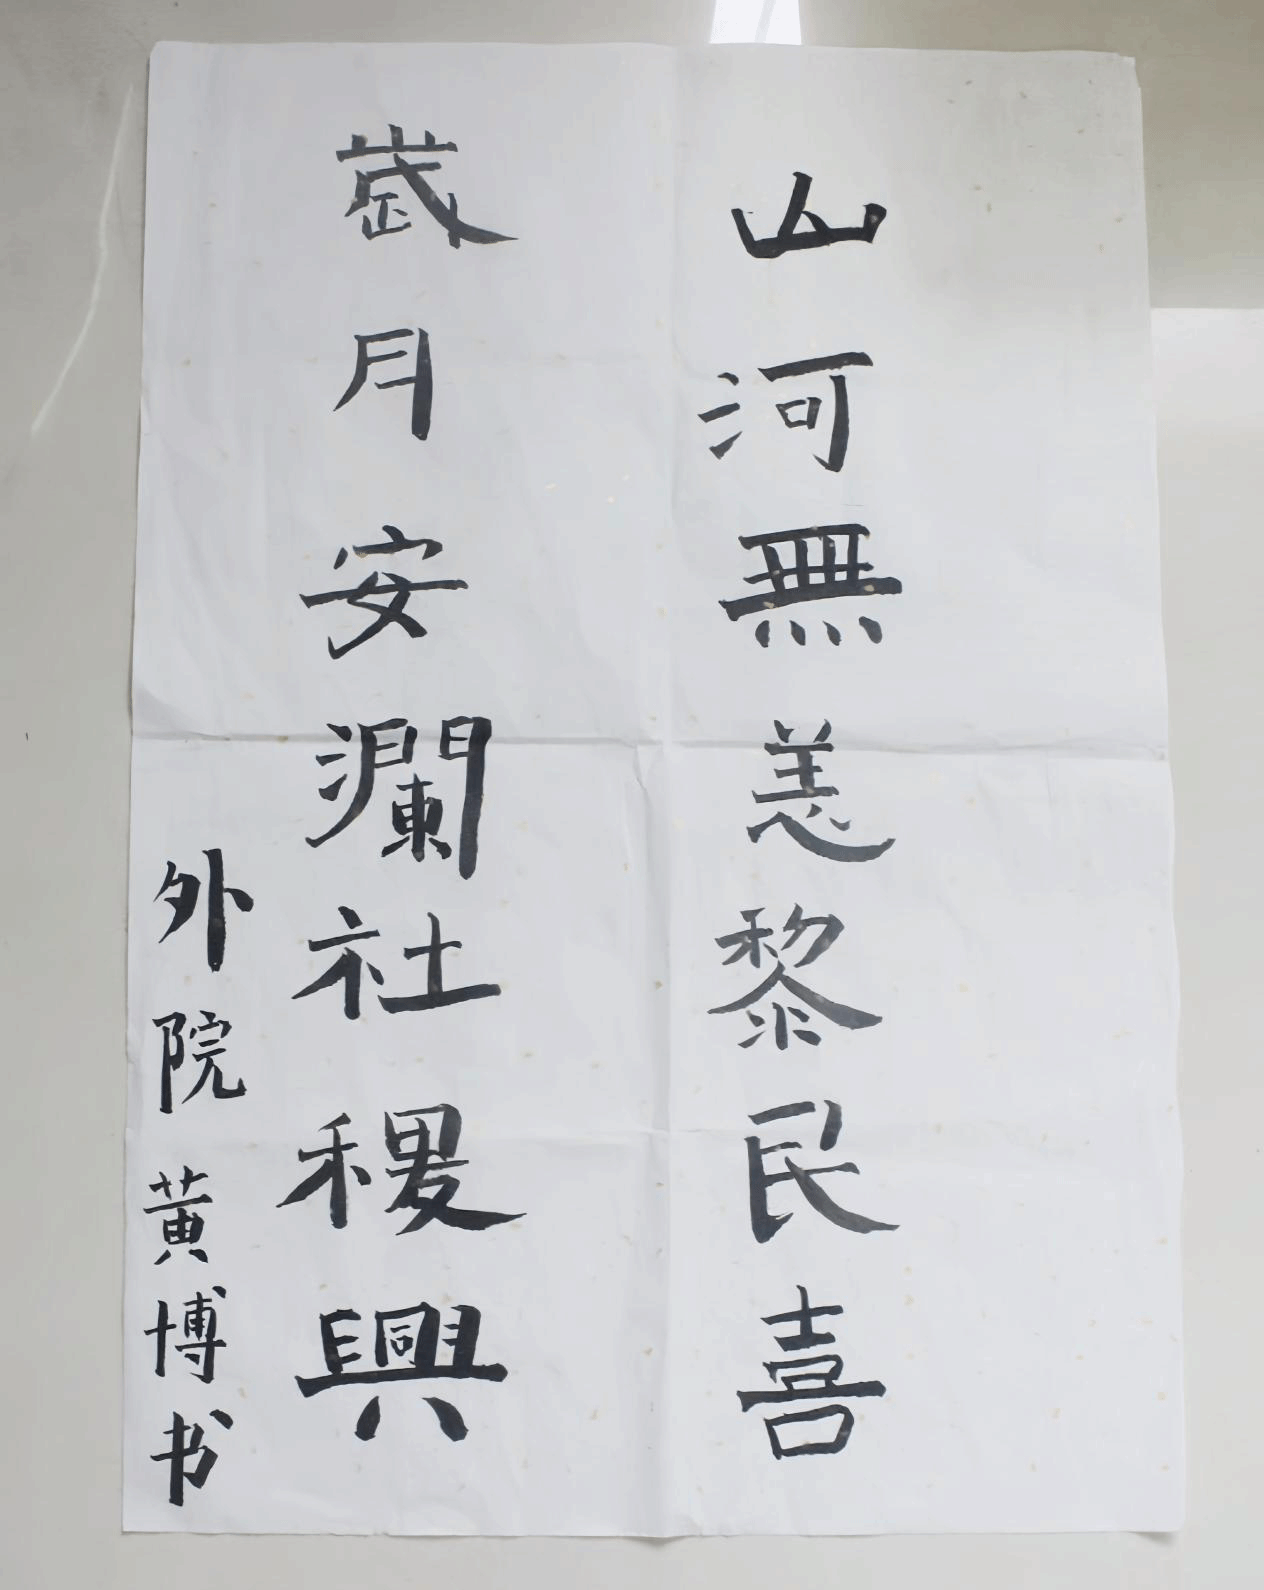 山河無恙黎民喜
歲月安瀾社稷興
外院黄博书